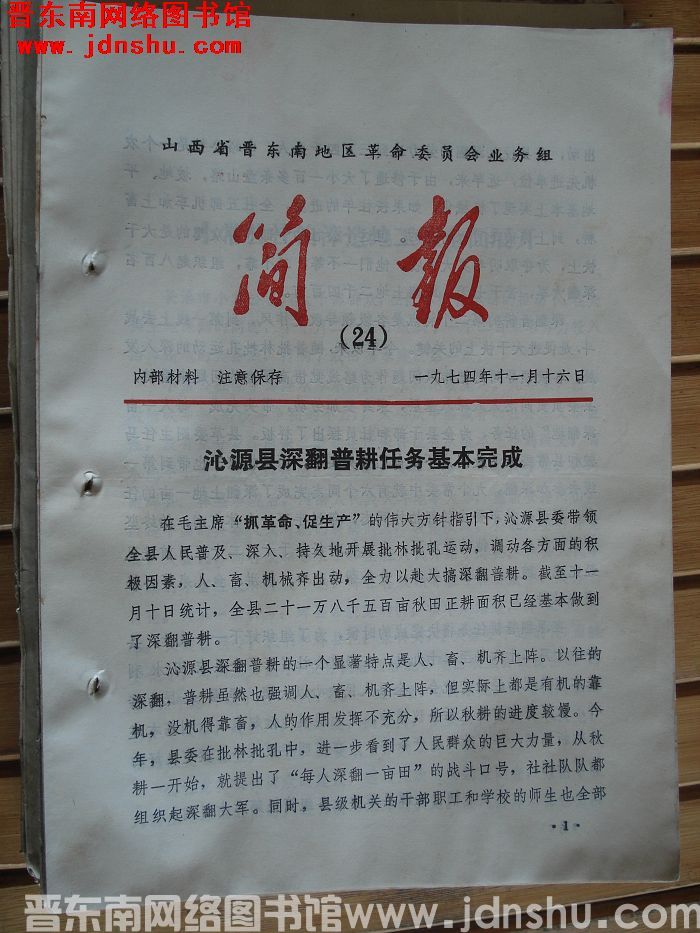 晋东南网络图书馆
www.jdnshu.com
山西省晋东南地区革命委员会业务组
简报
(24)
内部材料 注意保存 一九七四年十一月十六日
沁源县深翻普耕任务基本完成
在毛主席“抓革命、促生产”的伟大方针指引下，沁源县委带领
全县人民普及、深入、持久地开展批林批孔运动，调动各方面的积
极因素，人、畜、机械齐出动，全力以赴大搞深翻普耕。截至十一
月十日统计，全县二十一万八千五百亩秋田正耕面积已经基本做到
了深翻普耕。
沁源县深翻普耕的一个显著特点是人、畜、机齐上阵。以往的
深翻，普耕虽然也强调人、畜、机齐上阵，但实际上都是有机的靠
机，没机得靠畜，人的作用发挥不充分，所以秋耕的进度较慢。今
年，县委在批林批孔中，进一步看到了人民群众的巨大力量，从秋
耕一开始，就提出了“每人深翻一亩田”的战斗口号，社社队队都
组织起深翻大军。同时，县级机关的干部职工和学校的师生也全部
·1·
晋东南网络图书馆www.jdnshu.com